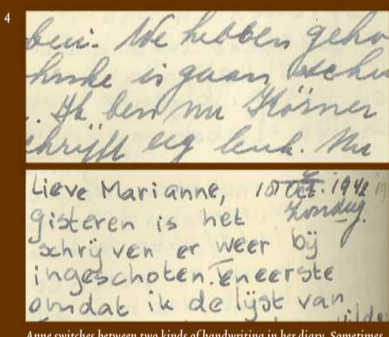 4
bui. We hebben geho
is gaan schu
. Ik ben nu Körner
chrijft erg leuk. Nu
Lieve Marianne, 18 Oct. 1942
Zondag.
gisteren is het
schrijven er weer bij
ingeschoten. Teneerste
omdat ik de lijst van
Anne switches between two kinds of handwriting in her diary. Sometimes